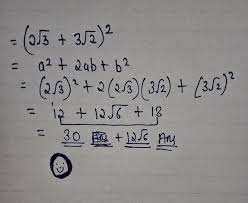 = (2√3 + 3√2)²
= a² + 2ab + b²
= (2√3)² + 2(2√3)(3√2) + (3√2)²
= 12 + 12√6 + 18
= 30 + 12√6 Ans